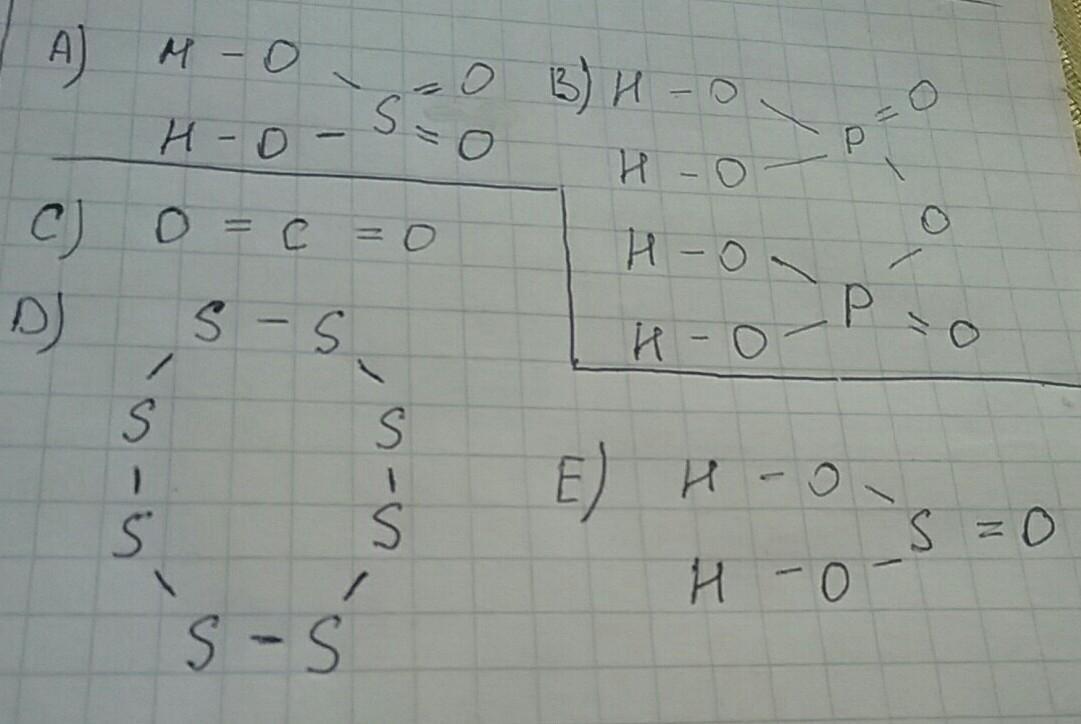 A) H - O \ S = O
H - O - S = O
B) H - O \ P = O
H - O - P \ O
H - O \ P / O
H - O - P = O
C) O = C = O
D) S - S
/ \
S S
| |
S S
\ /
S - S
E) H - O \ S = O
H - O - S